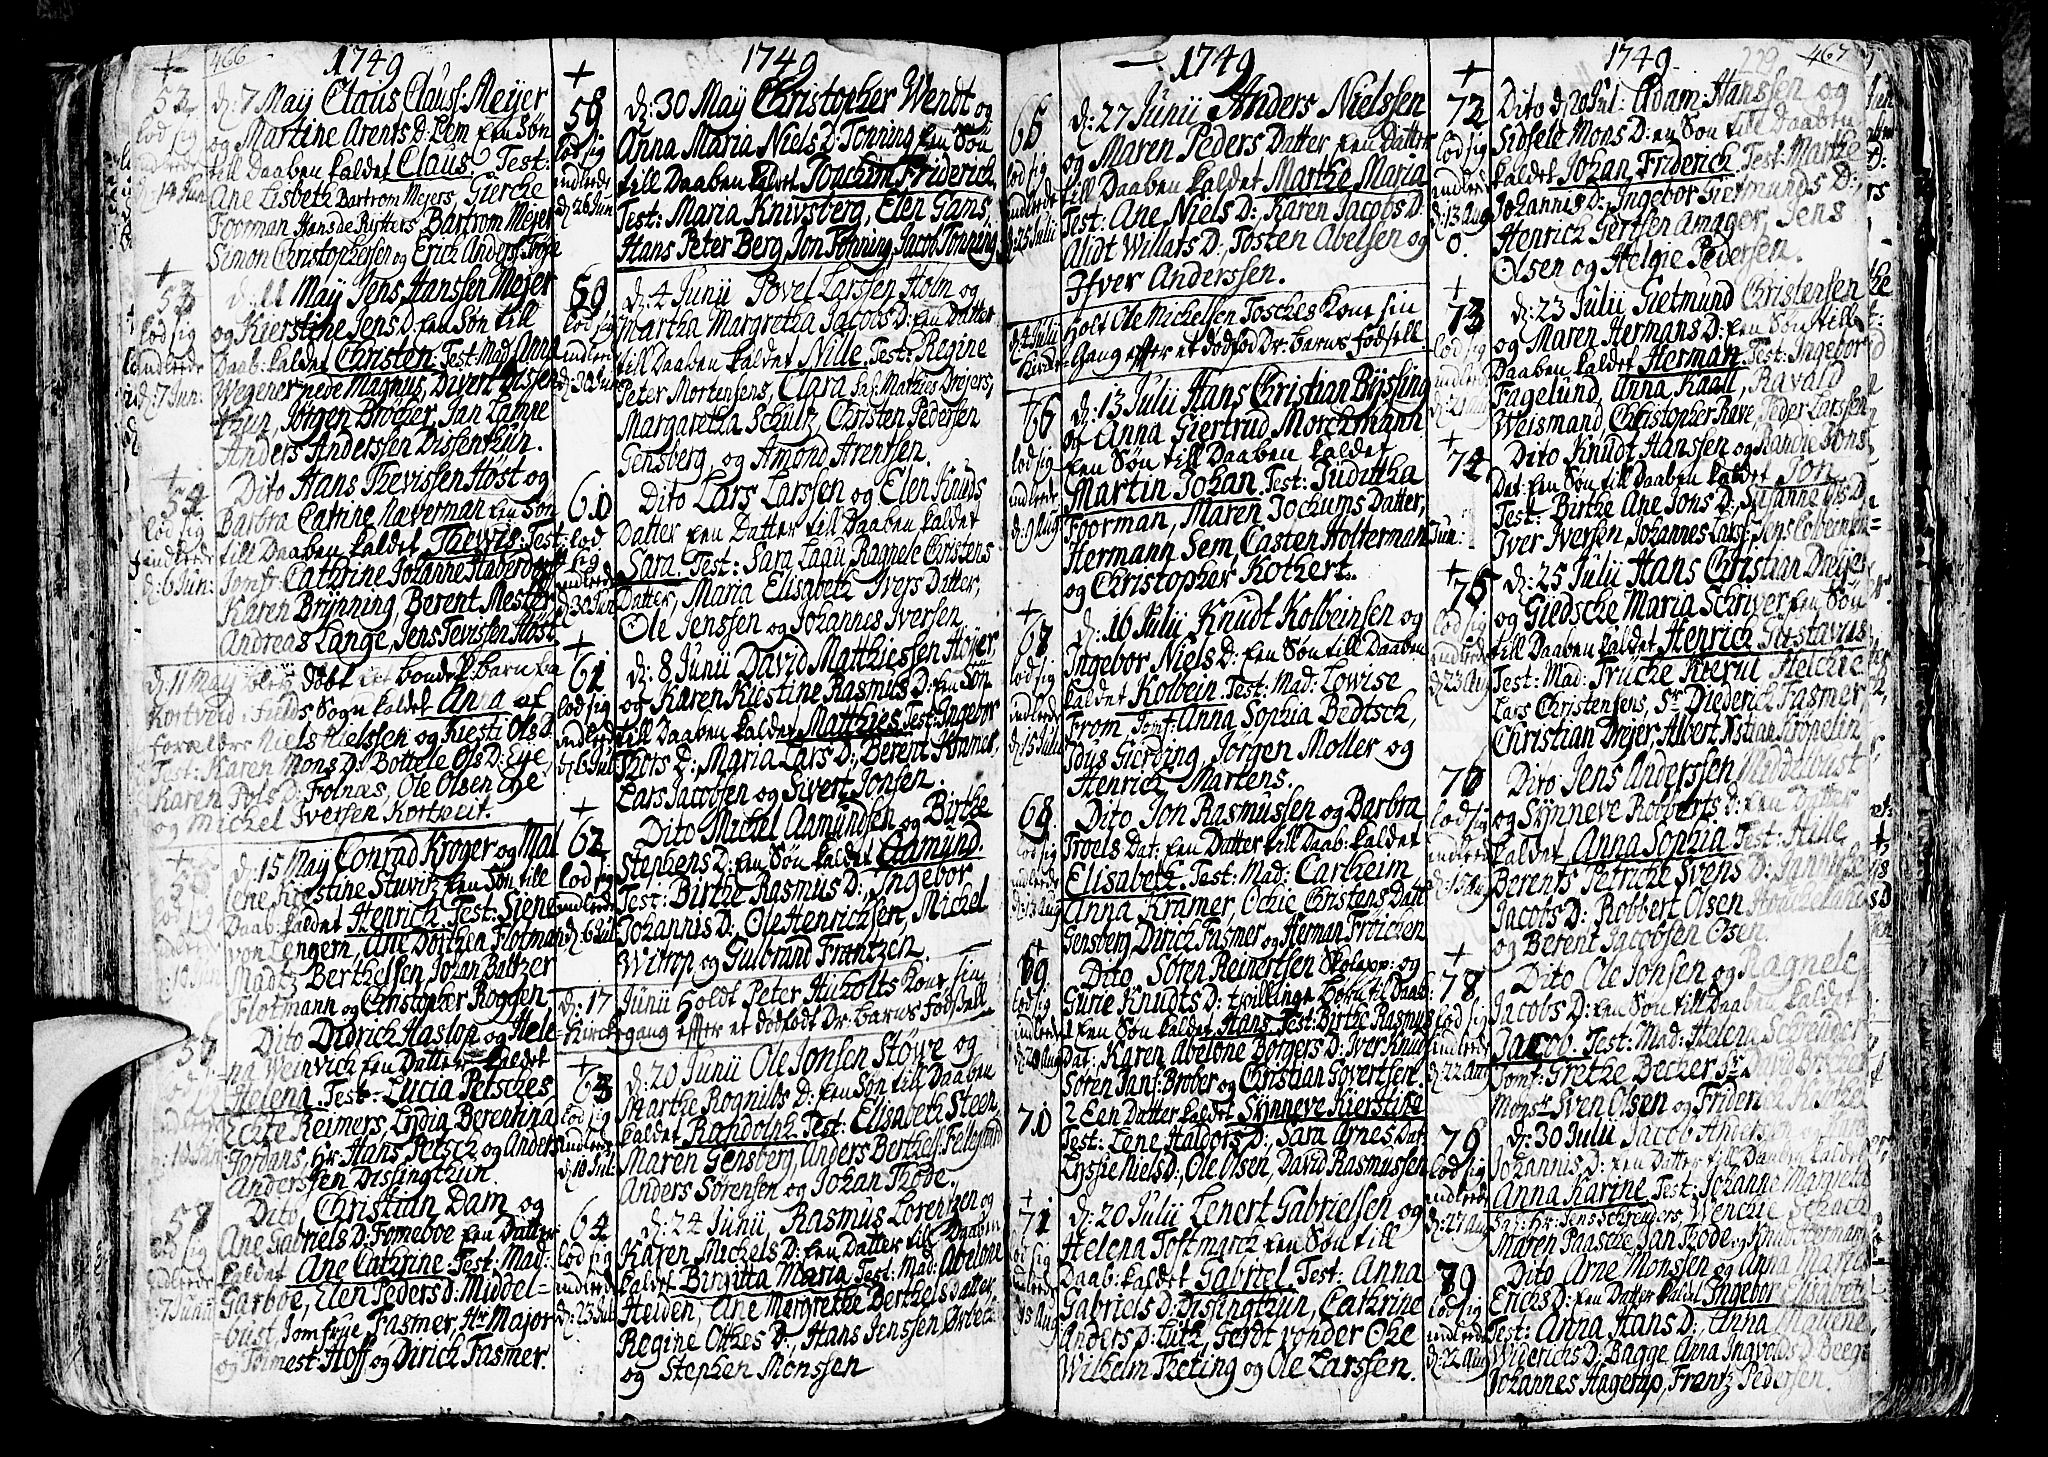 466
1749
52
lod sig
indlede
d: 14 Jun
d: 7 May Claus Clausf: Meijer
og Martine Arents D: Lem een Søn
till Daaben kaldet Claus. Test:
Ane Lisbeth Bartrom Mejers, Giercke
Foorman Hans de Rijtters Bartrom Mejer
Simon Christophersen og Erich Andersf:
53
lod sig
indlede
d: 7 Jun:
d: 11 May Jens Hanssen Mejer
og Kierstine Jens D: een Søn till
Daab: kaldet Christen. Test: Mad: Anna
Wegener nede Magnus, Divert Dissen
thun, Jørgen Brøcher, Jan Lamne
Anders Anderssen Dissenthun.
54
lod sig
indlede
d: 6 Jun:
Dito Hans Thevissen Høst og
Barbra Catrine Naverman een Søn
till Daaben kaldet Thewis. Test:
Jomfr: Cathrine Johanne Haberdorff
Karen Brynning, Berent Mester
Andreas Lange, Jens Tevissen Høst
d: 11 May blev døbt et bonde barn fra
Sogn kaldet Anna af
Forældre Niels Nielssen og Kiesti Ols D:
Test: Karen Mons D: Bottele Ols D: Eye,
Karen Pols D: Folnæs, Ole Olsen Eye
og Michel Iversen Kortveit.
55
lod sig
indlede
d: 10 Jun
d: 15 May Conrad Krøger og Mal
lene Kirstine Stuvitz een Søn till
Daab: kaldet Henrich. Test: Siene
von Lengern, Ane Dorthea Flotman
Madtz Berthelsen, Johan Baltzer
Flotmann og Christopher Roggen
Dito Didrich Haslop og Hele
na Weinvich een Datter kaldet
Helena. Test: Lucia Petsches
Echte Reimers, Lydia Berentina
Jordans, Hr Hans Petsch og Anders
Anderssen Dissingthun.
57
lod sig
indlede
7 Junii
Dito Christian Dam og
Ane Gabriels D: Fomeboe een Datter
kaldet Ane Cathrine. Test: Mad:
Garboe, Elen Peders D: Middel=
bust Jomfrue Fasmer, Hr Major
og Tolmest: Hoff og Dirich Fasmer.
1749
58
lod sig
indlede
d: 26 Jun
d: 30 May Christopher Wendt og
Anna Maria Niels D: Tonning een Søn
till Daaben kaldet Joachim Friderich,
Test: Maria Knivsberg, Elen Gams,
Hans Peter Berg, Jon Tonning, Jacob Tonning
59
lod sig
indlede
d: 30 Jun
d: 4 Junii Povel Larssen Holm og
Martha Margretha Jacobs D: een Datter
till Daaben kaldet Nille. Test: Regine
Peter Mortensens, Clara Sal: Mathies Drejers,
Margaretha Schultz, Christen Pedersen
Gensberg, og Amond Arentsen.
60
lod
sig
indlede
d: 30 Jun
Dito Lars Larssen og Elen Knuds
Datter een Datter till Daaben kaldet
Sara. Test: Sara Laau, Ragnele Christens
Datter, Maria Elisabeth Ivers Datter,
Ole Jenssen og Johannes Iversen,
61
lod sig
indlede
d: 6 Jul
d: 8 Junii David Matthiessen Høyer,
og Karen Kiestine Rasmus D: een Søn
till Daaben kaldet Matthies. Test: Ingebor
Thors D:, Maria Lars D:, Berent Kramer,
Lars Jacobsen og Sivert Jonsen.
62
lod sig
indlede
d: 6 Jul
Dito Michel Aamundsen og Birthe
Stephens D: een Søn kaldet Aamund.
Test: Birthe Rasmus D:, Ingebor
Johannis D: Ole Henrichsen, Michel
Witrop og Gulbrand Frantzen.
d: 17 Junii holdt Peter Huholts Kone sin
Kirckegang effter et dødfødt Dr: barns Fødsell
63
lod sig
indlede
d: 10 Jul:
d: 20 Junii Ole Jonsen Støwe og
Marthe Rognilds D: een Søn till Daaben
kaldet Randolph. Test: Elisabeth Steen,
Maren Gensberg, Anders Berthelf: Fellegaard
Anders Sørensen og Johan Trøde.
64
lod sig
indlede
d: 25 Jul
d: 24 Junii Rasmus Lorentzen og
Karen Michels D: een Datter till Daaben
kaldet Birgitta Maria. Test: Mad: Abelone
Heiden, Ane Margrethe Berthels Datter,
Regine Ottes D:, Hans Jenssen Ørbech
og Stephen Monssen
1749
65
lod sig
indlede
d: 25 Julii
d: 27 Junii Anders Nielssen
og Maren Peders Datter een Datter
till Daaben kaldet Marthe Maria
Test: Ane Niels D:, Karen Jacobs D:
Alidt Willars D: Tosten Abelsen og
Ifver Anderssen.
d: 4 Julii holt Ole Michelsen Tosches Kone sin
Kircke-Gang effter et dødfød Dr: barns fødsell
66
lod sig
indlede
d: 9 Aug
d: 13 Julii Hans Christian Bÿssing
og Anna Giertrud Morchmann
een Søn till Daaben kaldet
Martin Johan. Test: Juditha
Foorman, Maren Jochums Datter,
Hermann Sem, Casten Holterman
og Christopher Kothert.
67
lod sig
indlede
d: 15 Julii
d: 16 Julii Knudt Kolbeinsen og
Ingebor Niels D: een Søn till Daaben
kaldet Kolbein. Test: Mad: Lowise
From, Jomf: Anna Sophia Bedtsch,
Idus Giording, Jørgen Møller og
Henrich Martens.
68
lod sig
indlede
d: 13 Aug
Dito Jon Rasmussen og Barbra
Troels Dat: een Datter till Daab: kaldet
Elisabeth. Test: Mad: Carlheim
Anna Kramer, Ochie Christens Datt
Gensberg Dirich Fasmer og Herman Frøichen
69
lod sig
indlede
d: 20 Aug
Dito Søren Reinertsen Skolapp: og
Gurie Knudts D: tvillinge børn til Daab:
1 een Søn kaldet Hans. Test: Birthe Rasmus
Dat:, Karen Abelone Børgers D: Iver Knud
Søren Jansf: Brober og Christian Govertsen.
70
2 Een Datter kaldet Sÿnneve Kierstine
Test: Lene Haldors D:, Sara Arnes Dat:
Lyssie Niels D:, Ole Olsen, David Rasmussen
71
lod sig
indlede
d: 18 Aug
d: 20 Julii Lenert Gabrielssen og
Helena Tostmarck een Søn till
Daab: kaldet Gabriel. Test: Anna
Gabriels D: Dissingthun, Cathrine
Anders D: Lütk, Gerdt vonder Ohe
Wilhelm Theting og Ole Larssen.
1749
467
72
lod sig
indlede
d: 13 Aug
0.
Dito d: 20 Jul: Adam Hanssen og
Sidsele Mons D: en Søn till Daaben
kaldet Johan Friderich Test: Marthe
Johannis D: Ingebor Sietmands D:,
Henrich Gertsen Amager, Jens
Olsen og Helgie Pedersen.
73
lod sig
indlede
d: 21 Aug
d: 23 Julii Gietmund Christensen
og Maren Hermans D: een Søn till
Daaben kaldet Herman. Test: Ingebor
Fagelund, Anna Kaall, Ravald
Weismand, Christopher Rave, Peder Larssen
74
Jun:
Dito Knudt Hanssen og Ranche Jons
Dat: een Søn till Daaben kaldet Jon.
Test: Birthe Ane Jons D:, Susanne Ols D
Iver Iversen, Johannes Larsf:
75
lod sig
indlede
d: 23 Aug
d: 25 Julii Hans Christian Dreÿer
og Giedsche Maria Schriver een Søn
till Daaben kaldet Henrich Gustavus
Test: Mad: Trüche Kierul Helchie
Lars Christensens, Sr Diederich Fasmer,
Christian Drejer, Albert Xstian Krøpelin
76
lod sig
indlede
d: 15 Aug
Dito Jens Anderssen Middelbust
og Sÿnneve Robberts D: een Datter
kaldet Anna Sophia Test: Hille
Berents Petriche Svens D: Jannicke
Jacobs D: Robbert Olsen
og Berent Jacobsen Øsen.
78
lod sig
indlede
d: 22 Aug
Dito Ole Jonsen og Ragnele
Jacobs D: een Søn till Daaben kaldet
Jacob. Test: Mad: Helena
Jomf: Grethe Becker, Sr
Monsr Sven Olsen og Friderich
76
lod sig
indlede
d: 27 Aug
d: 30 Julii Jacob Anders
Johannis D: een Datter till Daaben kaldet
Anna Karine Test: Johanne Margreta
Sal: Hr: Jens Schreuders, Wenche Schack
Maren Paasche, Jan Trøde og Knud Herman
79
lod sig
indlede
d: 22 Aug
Dito Arne Monssen og Anna Maria
Erichs D: een Datter kaldet Ingebor Elisabeth
Test: Anna Hans D:, Anna
Widerichs D: Bagge Anna Ingvolds D:
Johannes Hagerup, Frantz Pedersen.